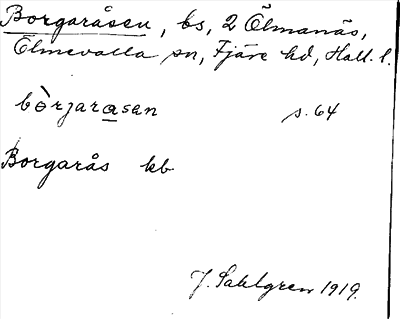 Borgaråsen, bs, 2 Ölmanäs,
Ölmevalla sn, Fjäre hd, Hall. l.
bòrjarasan s. 64
Borgarås kb
J. Sahlgren 1919.